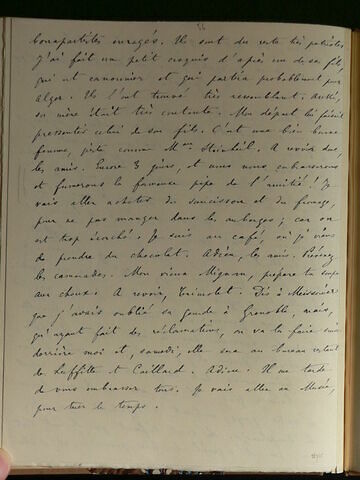 bonapartistes enragés. Ils sont du reste très patriotes
J'ai fait un petit croquis d'après un de ses fils,
qui est canonnier et qui partira probablement pour
Alger. Ils l'ont trouvé très ressemblant. Aussi,
sa mère était très contente. Mon départ lui faisait
pressentir celui de son fils. C'est une bien bonne
femme, juste comme Mme Steinheil. A revoir donc,
les amis. Encore 3 jours, et nous nous embrasserons
et fumerons la fameuse pipe de l'amitié ! Je
vais aller acheter du saucisson et du fromage,
pour ne pas manger dans les auberges ; car on
est trop écorché. Je suis au café, où je viens
de prendre du chocolat. Adieu, les amis.
les camarades. Mon vieux Mignan, prépare ta soupe
aux choux. A revoir, Trimolet. Dis à Meissonier
que j'avais oublié sa gourde à Grenoble, mais,
qu'ayant fait des réclamations, on va la faire suivre
derrière moi et, samedi, elle sera au bureau restant
de Laffitte et Caillard. Adieu. Il me tarde
de vous embrasser tous. Je vais aller au Musée,
pour tuer le temps.